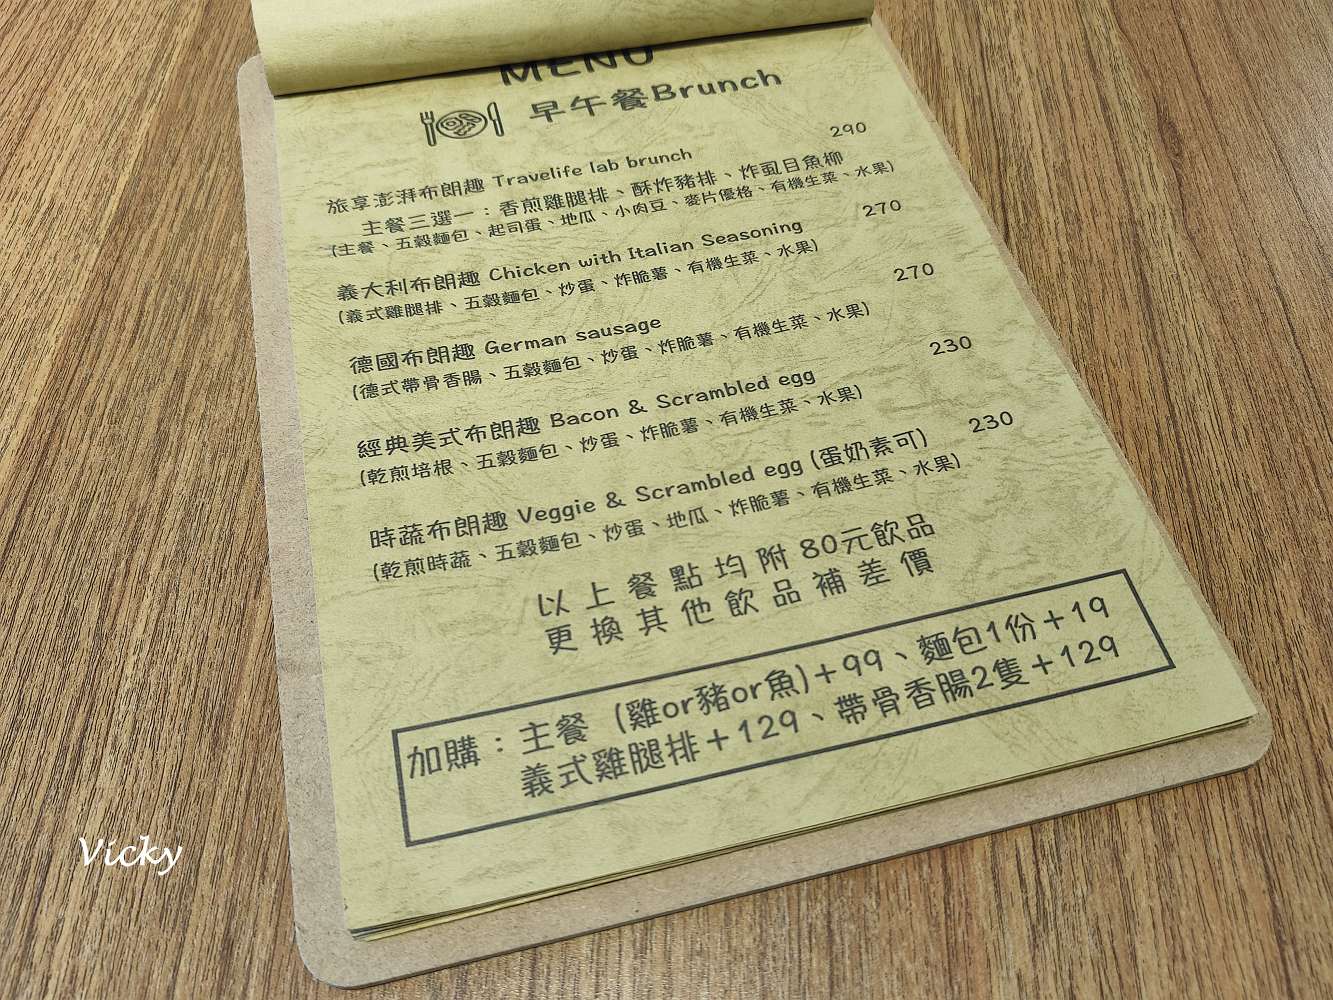 MENU
早午餐Brunch
旅享澎湃布朗趣 Travelife lab brunch 290
主餐三選一：香煎雞腿排、酥炸豬排、炸虱目魚柳
(主餐、五穀麵包、起司蛋、地瓜、小肉豆、麥片優格、有機生菜、水果)
義大利布朗趣 Chicken with Italian Seasoning 270
(義式雞腿排、五穀麵包、炒蛋、炸脆薯、有機生菜、水果)
德國布朗趣 German sausage 270
(德式帶骨香腸、五穀麵包、炒蛋、炸脆薯、有機生菜、水果)
經典美式布朗趣 Bacon & Scrambled egg 230
(乾煎培根、五穀麵包、炒蛋、炸脆薯、有機生菜、水果)
時蔬布朗趣 Veggie & Scrambled egg (蛋奶素可) 230
(乾煎時蔬、五穀麵包、炒蛋、地瓜、炸脆薯、有機生菜、水果)
以上餐點均附 80元飲品
更換其他飲品補差價
加購：主餐 (雞or豬or魚)＋99、麵包1份＋19
義式雞腿排＋129、帶骨香腸2隻＋129
Vicky